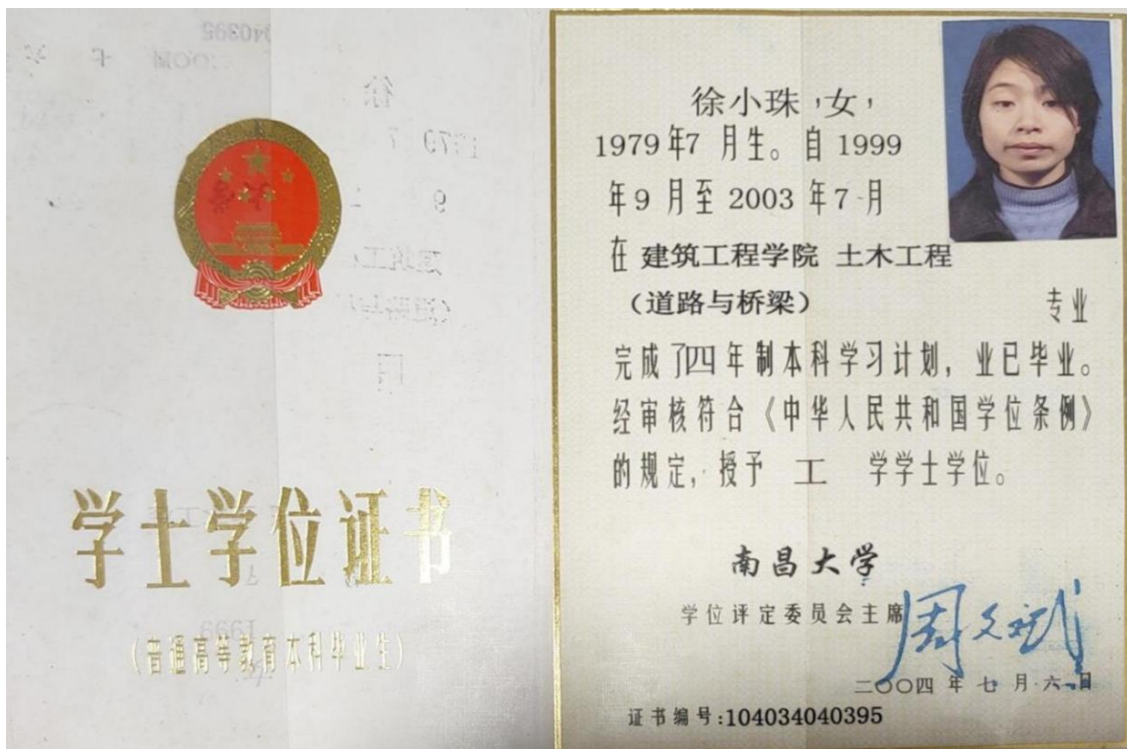 学士学位证书
(普通高等教育本科毕业生)
徐小珠,女,
1979年7月生。自1999
年9月至2003年7月
在 建筑工程学院 土木工程
(道路与桥梁) 专业
完成了四年制本科学习计划,业已毕业。
经审核符合《中华人民共和国学位条例》
的规定,授予 工 学学士学位。
南昌大学
学位评定委员会主席 周文斌
二〇〇四年七月六日
证书编号:104034040395